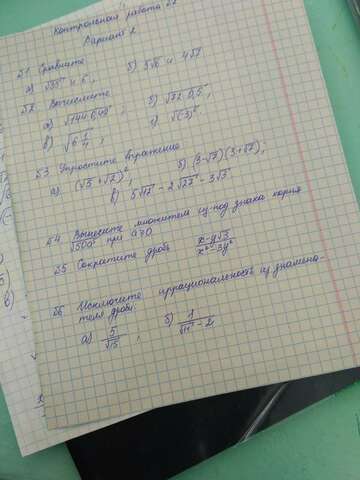 Контрольная работа №2
Вариант 2
№1 Сравните
а) √35 и 6, б) 5√6 и 4√7
№2 Вычислите
а) √144·0,49; б) √72·0,5,
в) √6 1/4; г) √(-3)⁶
№3 Упростите выражение
а) (√5+√2)², б) (3-√7)(3+√7);
в) 5√12 - 2√27 - 3√3
№4 Вынесите множитель из-под знака корня
при а≥0
№5 Сократите дробь (x-y√3)/(x²-3y²)
№6 Исключите иррациональность из знамена-
теля дроби:
а) 5/√15, б) 1/(√11 - 2)